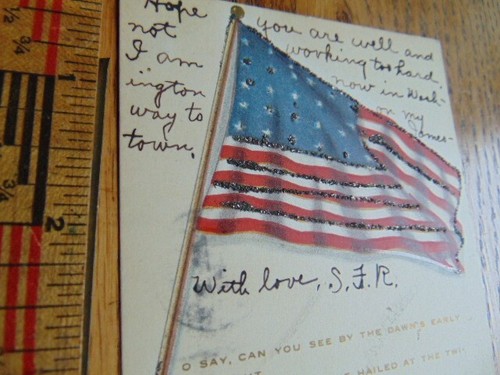 Hope you are well and
not working too hard
I am now in Wash-
ington on my
way to James-
town.
With love, S.F.R.
O SAY, CAN YOU SEE BY THE DAWN'S EARLY
HAILED AT THE TWI-
1/2
3/4
3/4
2